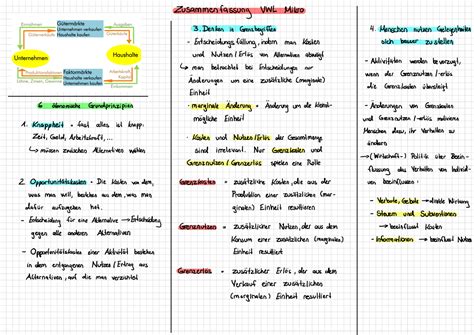 Zusammenfassung VWL Mikro
Einnahmen
Gütermärkte
Unternehmen verkaufen
Haushalte kaufen
Ausgaben
Unternehmen
Haushalte
Produktionsfaktoren
Löhne, Zinsen, Gewinne
Faktormärkte
Haushalte verkaufen
Unternehmen kaufen
Einkommen
6 ökonomische Grundprinzipien
1. Knappheit = fast alles ist knapp:
Zeit, Geld, Arbeitskraft,...
müssen zwischen Alternativen wählen
2. Opportunitätskosten = Die Kosten von dem,
was man will, bestehen aus dem, was man
dafür aufgegeben hat.
- Entscheidung für eine Alternative → Entscheidung
gegen alle anderen Alternativen
- Opportunitätskosten einer Aktivität bestehen
in dem entgangenen Nutzen/Ertrag aus
Alternativen, auf die man verzichtet
3. Denken in Grenzbegriffen
- Entscheidungsfällung, indem man Kosten
und Nutzen/Erlös der Alternativen abwägt
→ man betrachtet bei Entscheidungen nur
Änderungen um eine zusätzliche (marginale)
Einheit
- marginale Änderung = Änderung um die kleinst-
mögliche Einheit
- Kosten und Nutzen/Erlös der Gesamtmenge
sind irrelevant. Nur Grenzkosten und
Grenznutzen/Grenzerlös spielen eine Rolle
Grenzkosten = zusätzliche Kosten, die aus der
Produktion einer zusätzlichen (mar-
ginalen) Einheit resultiert
Grenznutzen = zusätzlicher Nutzen, der aus dem
Konsum einer zusätzlichen (marginalen)
Einheit resultiert
Grenzerlös = zusätzlicher Erlös, der aus dem
Verkauf einer zusätzlichen
(marginalen) Einheit resultiert
4. Menschen nutzen Gelegenheiten
sich besser zu stellen
- Aktivitäten werden bevorzugt,
wenn der Grenznutzen/-erlös
die Grenzkosten übersteigt
- Änderungen von Grenzkosten
und Grenznutzen/-erlös motivieren
Menschen dazu, ihr Verhalten zu
ändern
→ (Wirtschaft-) Politik über Beein-
flussung des Verhaltens von Individ-
uen beeinflussen:
- Verbote, Gebote → direkte Wirkung
- Steuern und Subventionen
→ beeinflusst Kosten
- Informationen → beeinflusst Nutzen